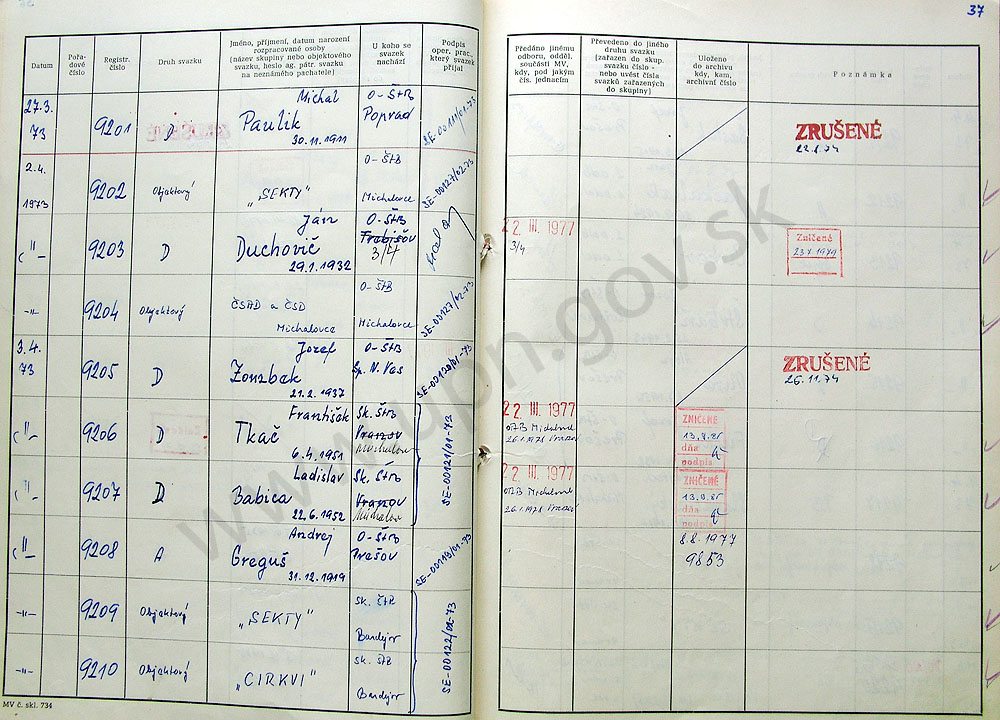 37
Datum
Pořa-
dové
číslo
Registr.
číslo
Druh svazku
Jméno, příjmení, datum narození
rozpracované osoby
(název skupiny nebo objektového
svazku, heslo ag. pátr. svazku
na neznámého pachatele)
U koho se
svazek
nachází
Podpis
oper. prac.,
který svazek
přijal
Předáno jinému
odboru, odděl.
součásti MV,
kdy, pod jakým
čís. jednacím
Převedeno do jiného
druhu svazku
(zařazen do skup.
svazku číslo -
nebo uvést čísla
svazků zařazených
do skupiny)
Uloženo
do archivu
kdy, kam,
archivní číslo
Poznámka
27.3.
73
9201
D
Michal
Paulik
30.11.1911
O-ŠtB
Poprad
ZRUŠENÉ
2.4.
1973
9202
Objektový
„SEKTY"
O-ŠtB
Michalovce
SE-00127/02-73
-"-
9203
D
Ján
Duchovič
29.1.1932
O-ŠtB
Trebišov
3/4
22 III. 1977
3/4
Zničené
-"-
9204
Objektový
ČSAD a ČSD
Michalovce
O-ŠtB
Michalovce
SE-00127/02-73
3.4.
73
9205
D
Jozef
Zombek
21.2.1937
O-ŠtB
Sp. N. Ves
SE-00120/01-73
ZRUŠENÉ
26.11.74
-"-
9206
D
František
Tkač
6.4.1951
Sk. ŠtB
Vranov
SE-00121/01-73
22 III. 1977
ZNIČENÉ
dňa
podpis
-"-
9207
D
Ladislav
Babica
22.6.1952
Sk. ŠtB
Vranov
22 III. 1977
ZNIČENÉ
dňa
podpis
-"-
9208
A
Andrej
Greguš
31.12.1919
O-ŠtB
Prešov
SE-00119/01-73
8.8.1977
9853
-"-
9209
Objektový
„SEKTY"
Sk. ŠtB
Bardejov
SE-00122/02-73
-"-
9210
Objektový
„CIRKVI"
Sk. ŠtB
Bardejov
MV č. skl. 734
www.upn.gov.sk